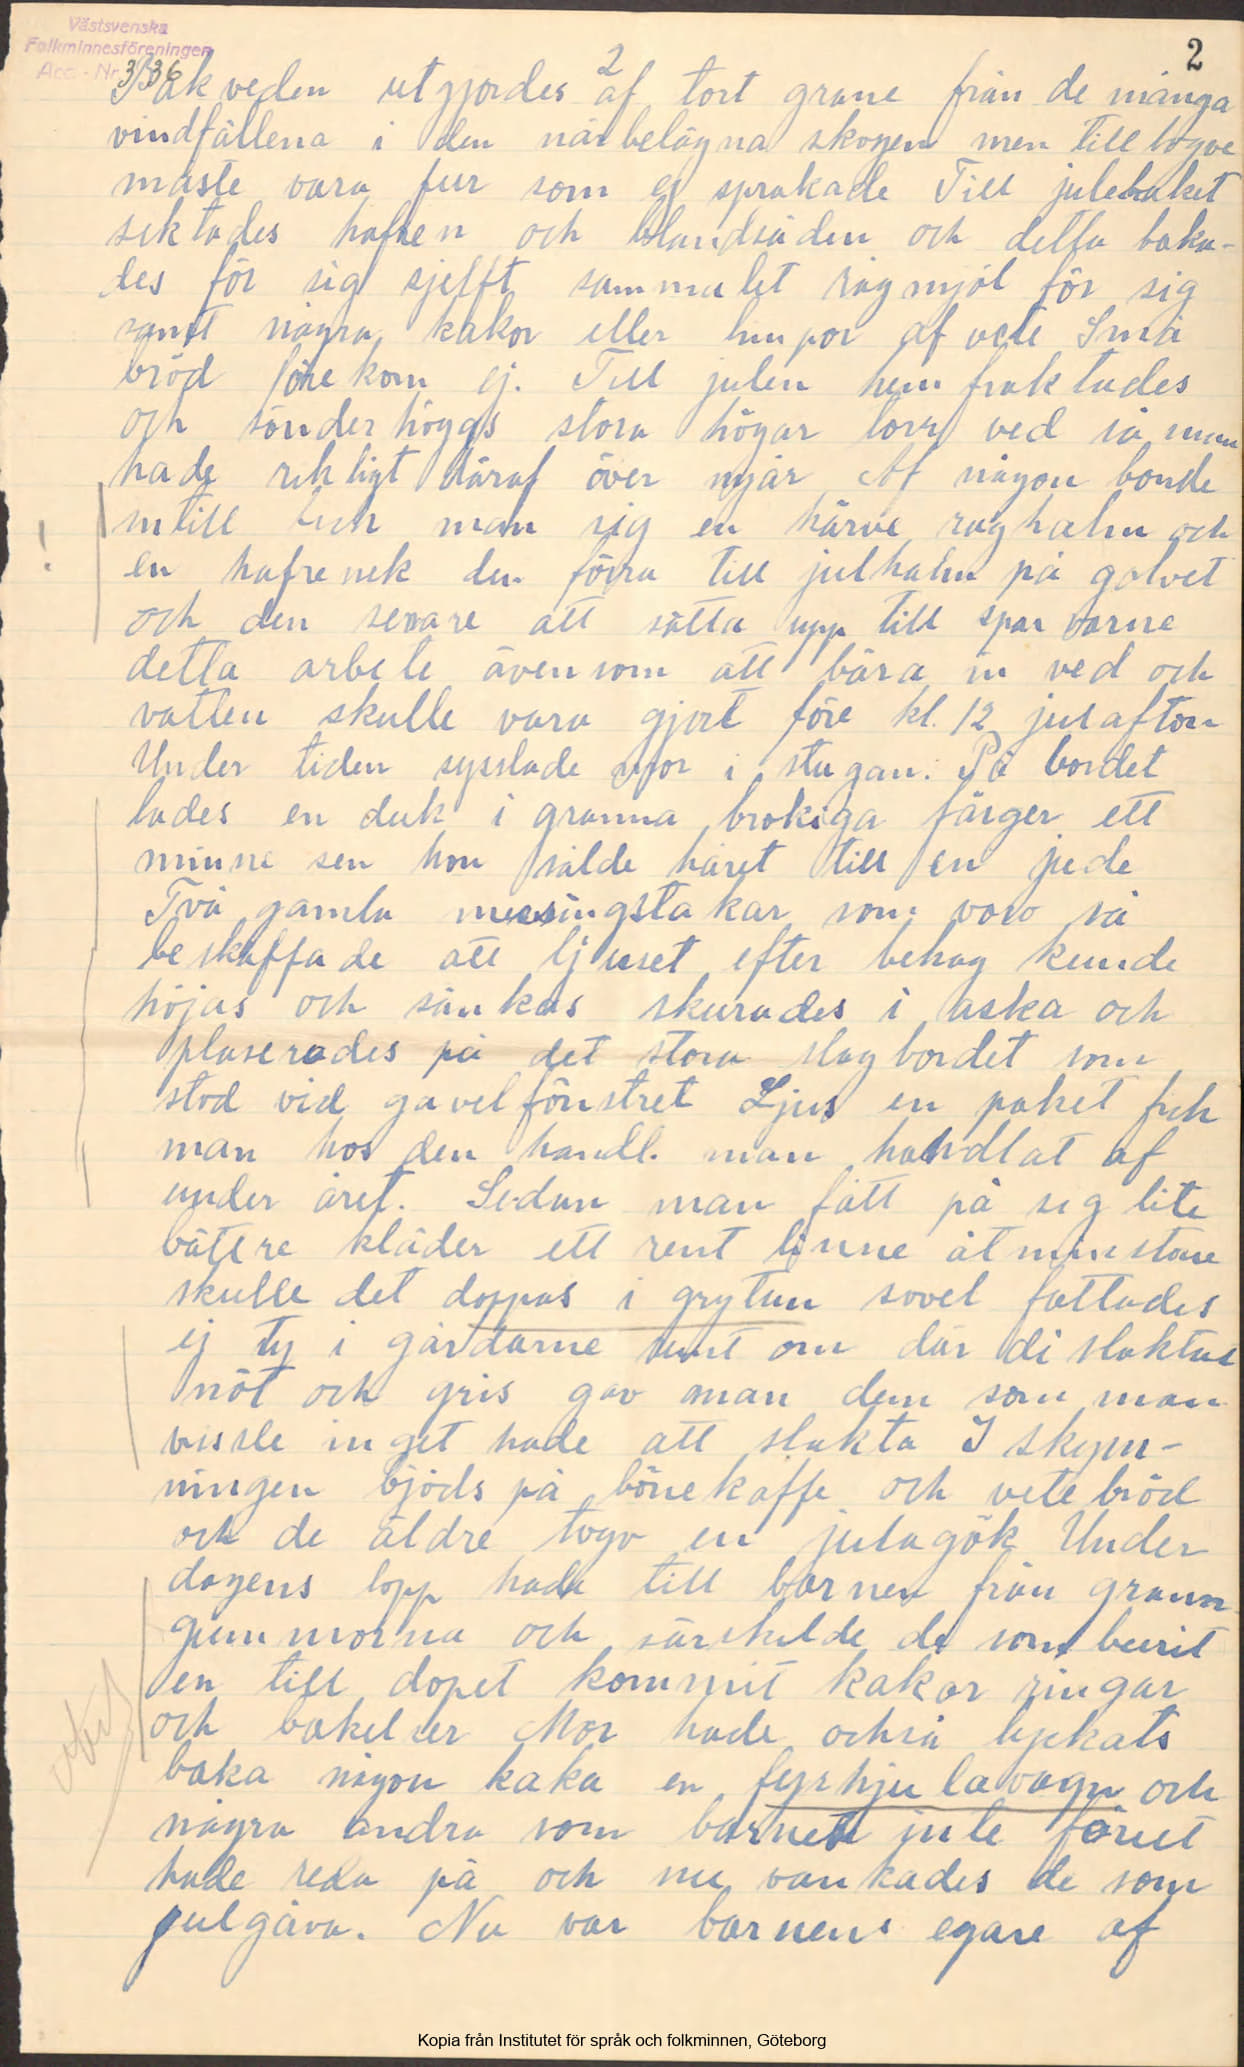 Västsvenska
Folkminnesföreningen
Acc.-Nr. 3836
2
2
Bakveden utgjordes af tort grane från de många
vindfällena i den närbelägna skogen men till
måste vara fur som ej sprakade Till julebaket
siktades hafren och blandsäden och detta baka-
des för sig sjelft sammalet rågmjöl för sig
samt några kakor eller limpor af vete Små
bröd förekom ej. Till julen hemfraktades
och sönderhöggs stora högar torr ved så man
hade rikligt däraf över nyår Af någon bonde
intill fick man sig en kärve råghalm och
en hafrenek den förra till julhalm på golvet
och den senare att sätta upp till sparvarne
detta arbete även som att bära in ved och
vatten skulle vara gjort före kl. 12 julafton
Under tiden sysslade mor i stugan. På bordet
lades en duk i granna brokiga färger ett
minne sen hon sålde håret till en jude
Två gamla messingstakar som voro så
beskaffade att ljuset efter behag kunde
höjas och sänkas skurades i aska och
plaserades på det stora slagbordet som
stod vid gavelfönstret Ljus en paket fick
man hos den handl. man handlat af
under året. Sedan man fått på sig lite
bättre kläder ett rent linne åtminstone
skulle det doppas i grytan sovel fattades
ej ty i gårdarne runt om där di slaktat
nöt och gris gav man dem som man
visste inget hade att slakta I skym-
ningen bjöds på bönekaffe och vetebröd
och de äldre togo en julagök Under
dagens lopp hade till barnen från grann
gummorna och särskilde de som burit
en till dopet kommit kakor ringar
och bakelser Mor hade också lyckats
baka någon kaka en fyrhjulavagn och
några andra som barnen inte förut
hade reda på och nu vankades de som
julgåva. Nu var barnens egare af
Kopia från Institutet för språk och folkminnen, Göteborg